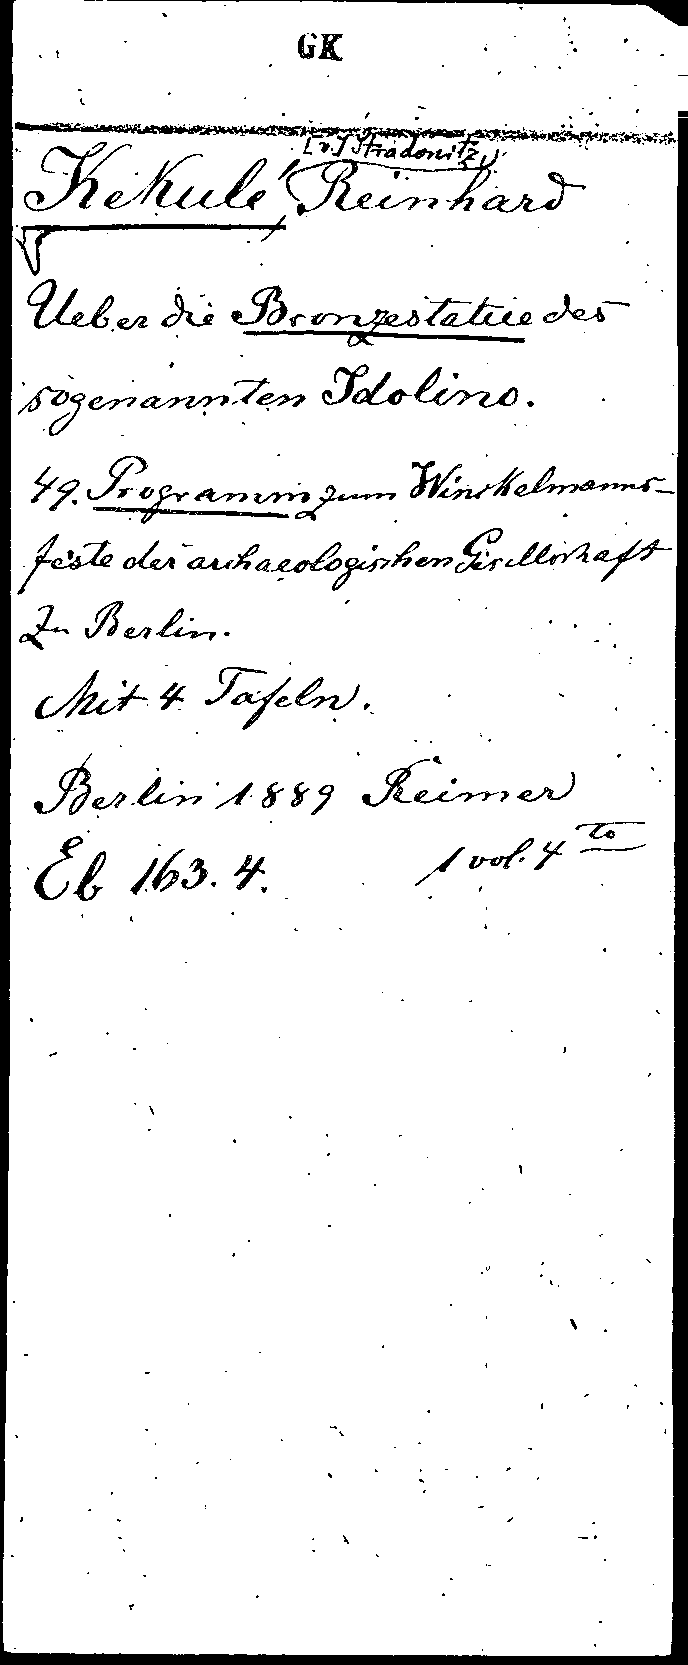 GK
[v.] Stradonitz,
Kekulé, Reinhard
Ueber die Bronzestatue des
sogenannten Idolino.
49. Programm zum Winckelmanns-
feste der archaeologischen Gesellschaft
zu Berlin.
Mit 4 Tafeln.
Berlin 1889 Reimer
Eb 163.4. 1 vol. 4to